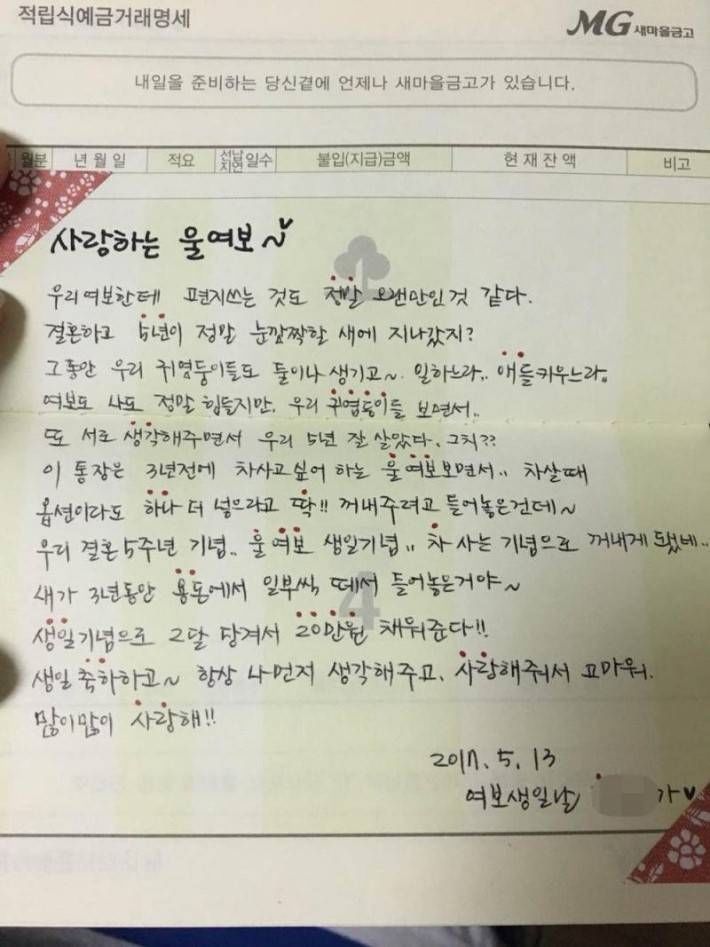 적립식예금거래명세
MG 새마을금고
내일을 준비하는 당신곁에 언제나 새마을금고가 있습니다.
월분 년월일 적요 선납지연 일수 불입(지급)금액 현재잔액 비고
사랑하는 울여보~♥
우리여보한테 편지쓰는 것도 정말 오랜만인것 같다.
결혼하고 5년이 정말 눈깜짝할 새에 지나갔지?
그동안 우리 귀염둥이들도 둘이나 생기고~. 일하느라.. 애들키우느라.
여보도 나도 정말 힘들지만, 우리 귀염둥이들 보면서..
또 서로 생각해주면서 우리 5년 잘 살았다. 그치??
이 통장은 3년전에 차사고싶어 하는 울여보보면서.. 차살때
옵션이라도 하나 더 넣으라고 딱!! 꺼내주려고 들어놓은건데~
우리 결혼5주년 기념.. 울여보 생일기념.. 차 사는 기념으로 꺼내게 됐네..
내가 3년동안 용돈에서 일부씩 떼서 들어놓은거야~
생일기념으로 2달 당겨서 20만원 채워준다!!
생일 축하하고~ 항상 나먼저 생각해주고, 사랑해줘서 고마워.
많이많이 사랑해!!
2017. 5. 13
여보생일날 가♥
4